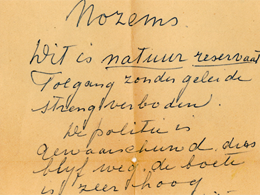 Nozems.
Dit is natuur reservaat
Toegang zonder geleide
streng verboden.
De politie is
gewaarschuwd, dus
blijf weg, de boete
is zeer hoog